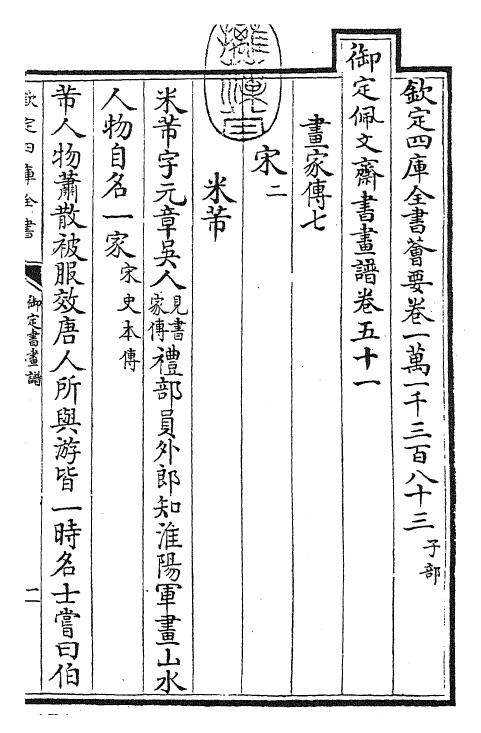 欽定四庫全書薈要卷一萬一千三百八十三 子部
御定佩文齋書畫譜卷五十一
畫家傳七
宋二
米芾
米芾字元章吳人見書家傳禮部員外郎知淮陽軍畫山水
人物自名一家宋史本傳
芾人物蕭散被服效唐人所與游皆一時名士嘗曰伯
欽定四庫全書
御定書畫譜
二